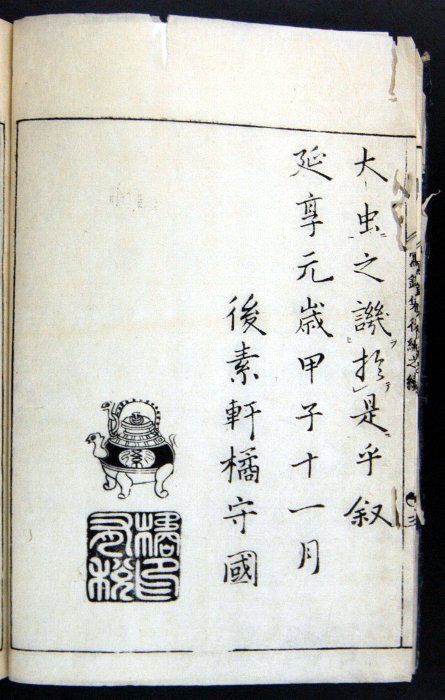 大虫之譏於是乎叙
延享元歳甲子十一月
後素軒橘守國